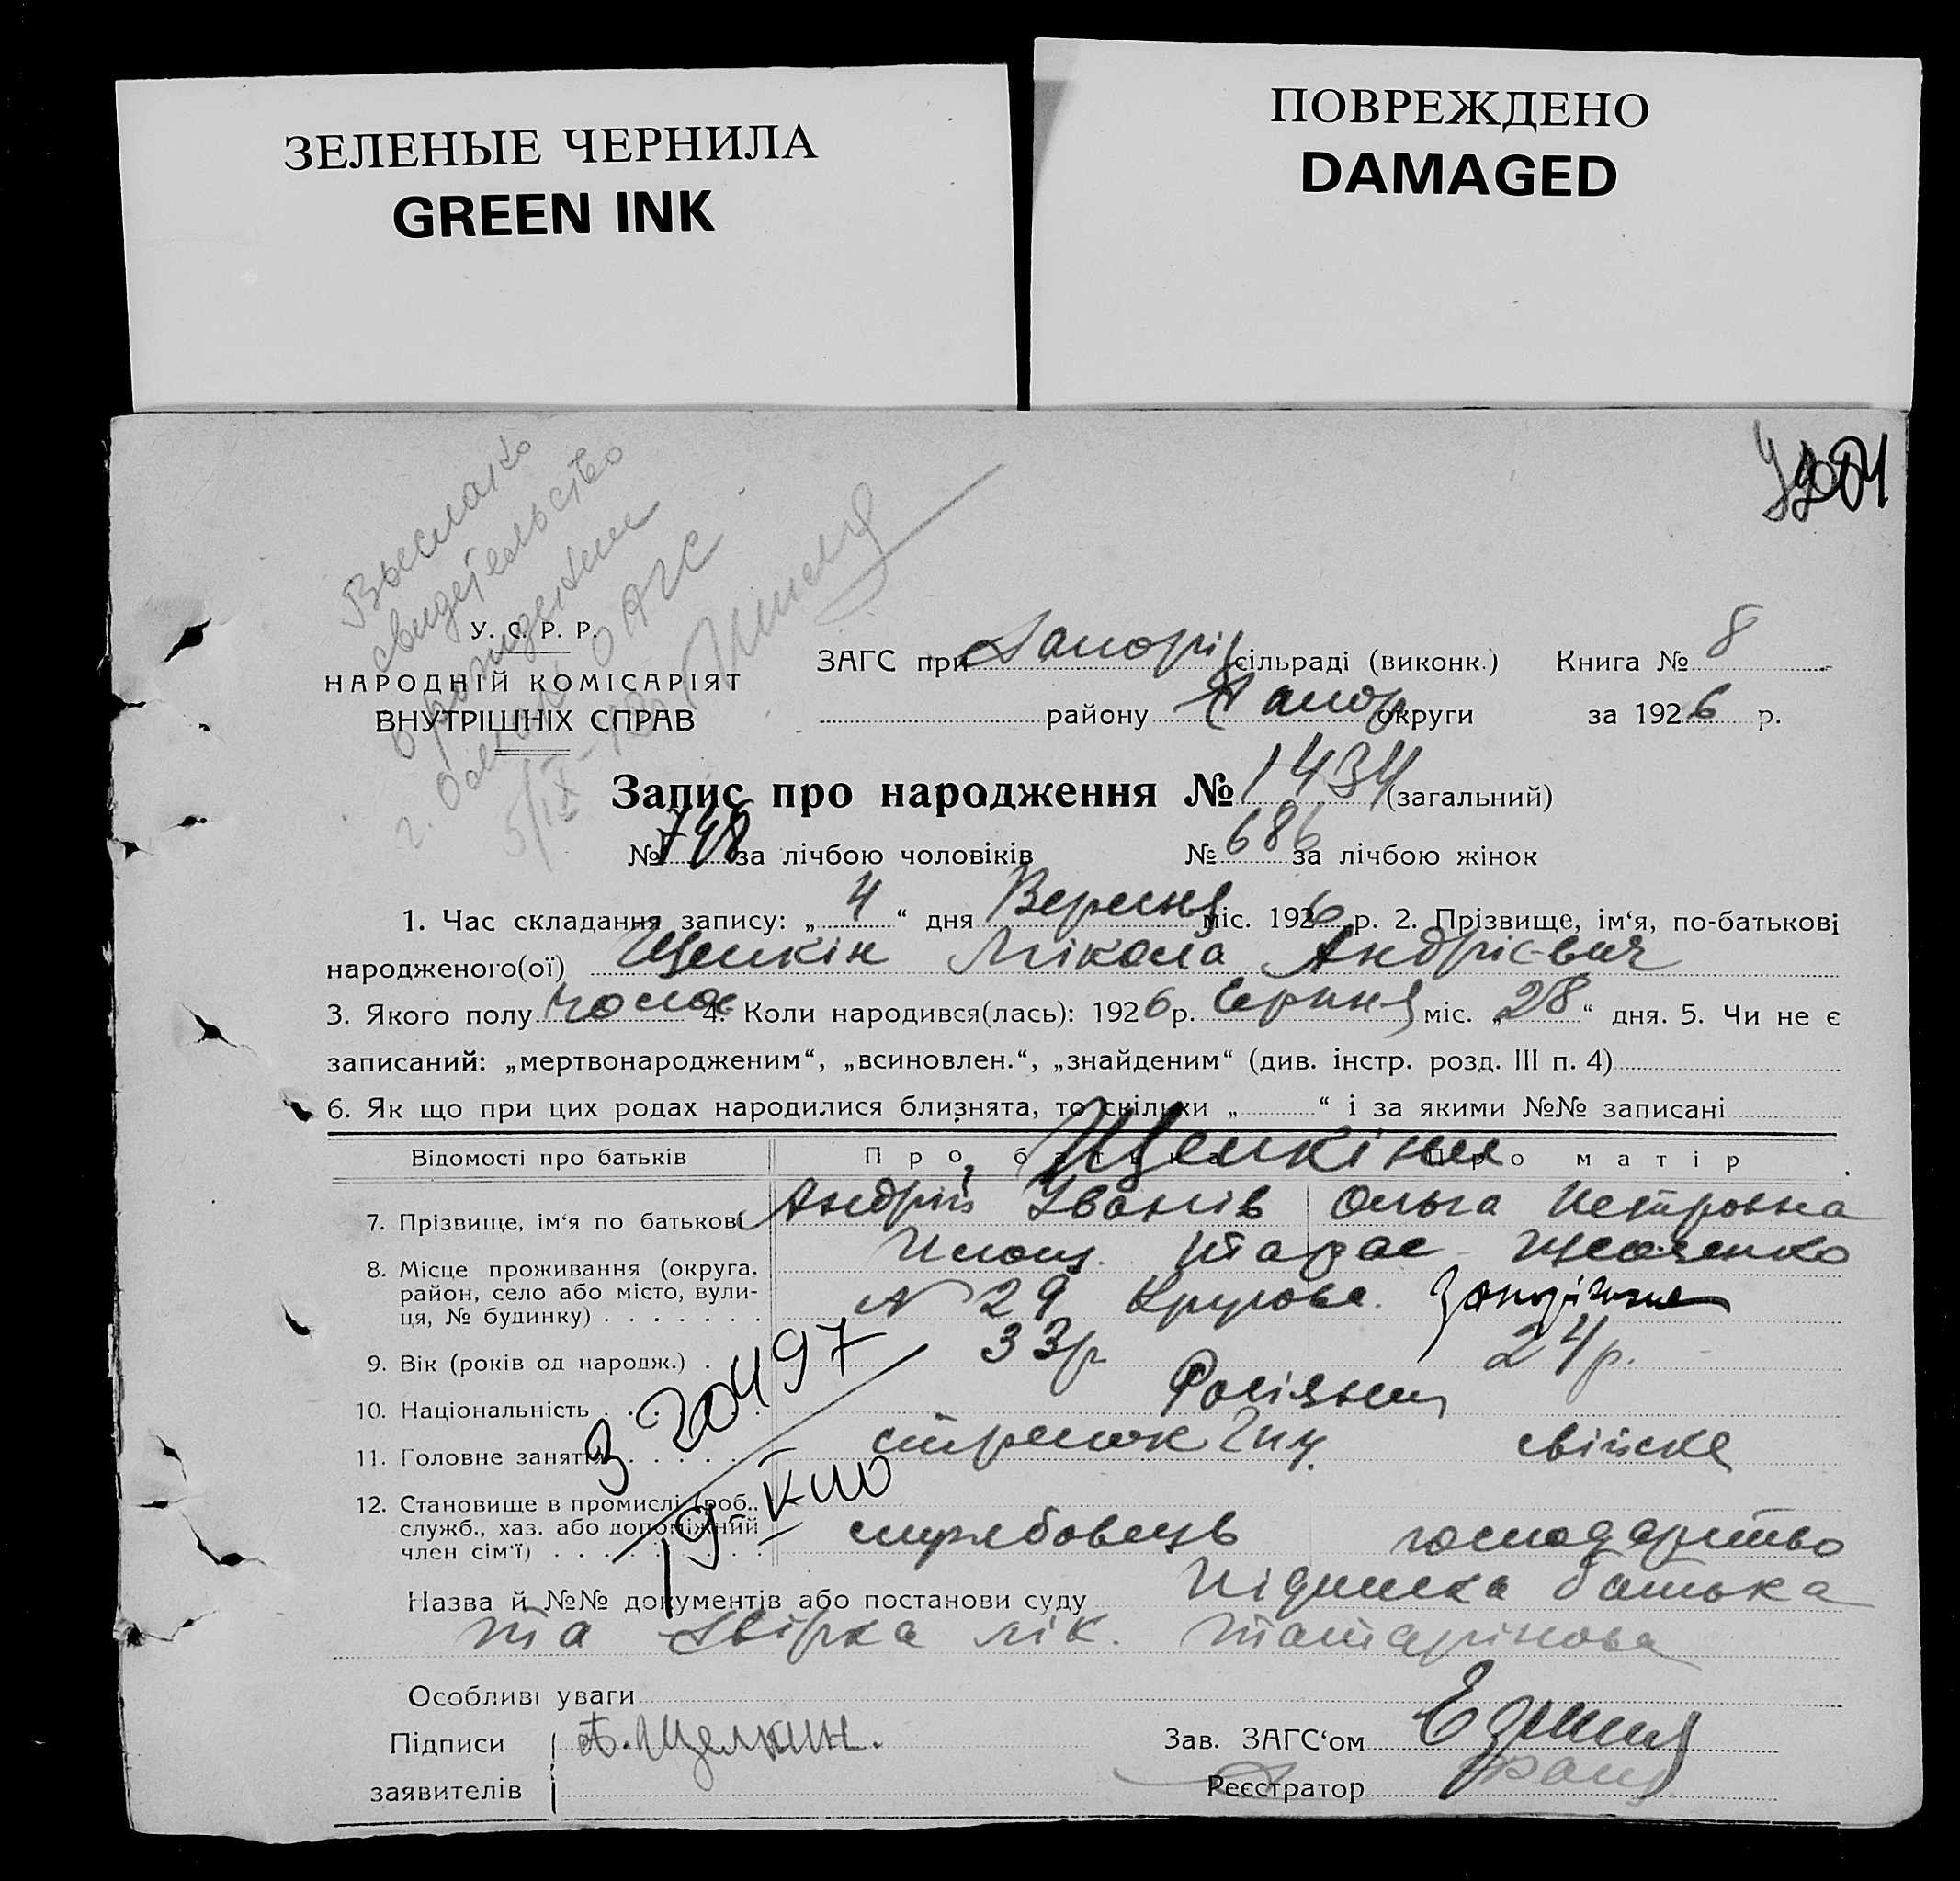 ЗЕЛЕНЫЕ ЧЕРНИЛА
GREEN INK
ПОВРЕЖДЕНО
DAMAGED
Выслано
свидетельство
о рождении
г.
5/IX
У. С. Р. Р.
НАРОДНІЙ КОМІСАРІЯТ
ВНУТРІШНІХ СПРАВ
ЗАГС при Запоріз сільраді (виконк.) Книга № 8
району Запор округи за 1926 р.
Запис про народження № 1434 (загальний)
№ 748 за лічбою чоловіків № 686 за лічбою жінок
1. Час складання запису: „ 4 “ дня Вересня міс. 1926 р. 2. Прізвище, ім‘я, по-батькові
народженого(ої) Щелкін Мікола Андрієвич
3. Якого полу чолов 4. Коли народився(лась): 1926 р. Серпня міс. „ 28 “ дня. 5. Чи не є
записаний: „мертвонародженим“, „всиновлен.“, „знайденим“ (див. інстр. розд. III п. 4)
6. Як що при цих родах народилися близнята, то скільки „ “ і за якими №№ записані
Відомості про батьків Про батька Про матір
Щелкіни
7. Прізвище, ім‘я по батькові Андрій Іванів Ольга Петровна
8. Місце проживання (округа, район, село або місто, вулиця, № будинку) Площ. Тарас Шевченко
№ 29 Запоріжжя
9. Вік (років од народж.) 33 р 24 р.
10. Національність Росіяни
11. Головне заняття стрелок свійске
12. Становище в промислі (роб., служб., хаз. або допоміжний член сім‘ї) службовець господарство
3 20497
19
Назва й №№ документів або постанови суду Підписка батька
та звірка лік. Татарінова
Особливі уваги
Підписи А. Щелкин. Зав. ЗАГС‘ом
заявителів Реєстратор